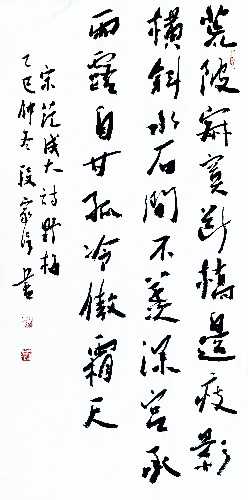 荒陂寂寞断橋邊疏影
横斜水石間不羡深宫承
雨露自甘孤冷傲霜天
宋范成大詩野梅
乙巳仲冬段家書